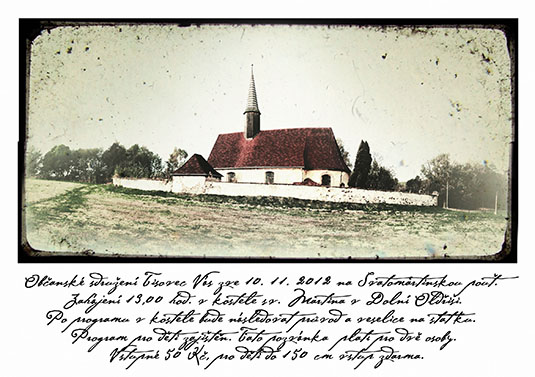 Občanské sdružení Tisovec Ves zve 10. 11. 2012 na Svatomartinskou pouť.
Zahájení 13,00 hod. v kostele sv. Martina v Dolní Oldřiši.
Po programu v kostele bude následovat průvod a veselice na statku.
Program pro děti zajištěn. Tato pozvánka platí pro dvě osoby.
Vstupné 50 Kč, pro děti do 150 cm vstup zdarma.